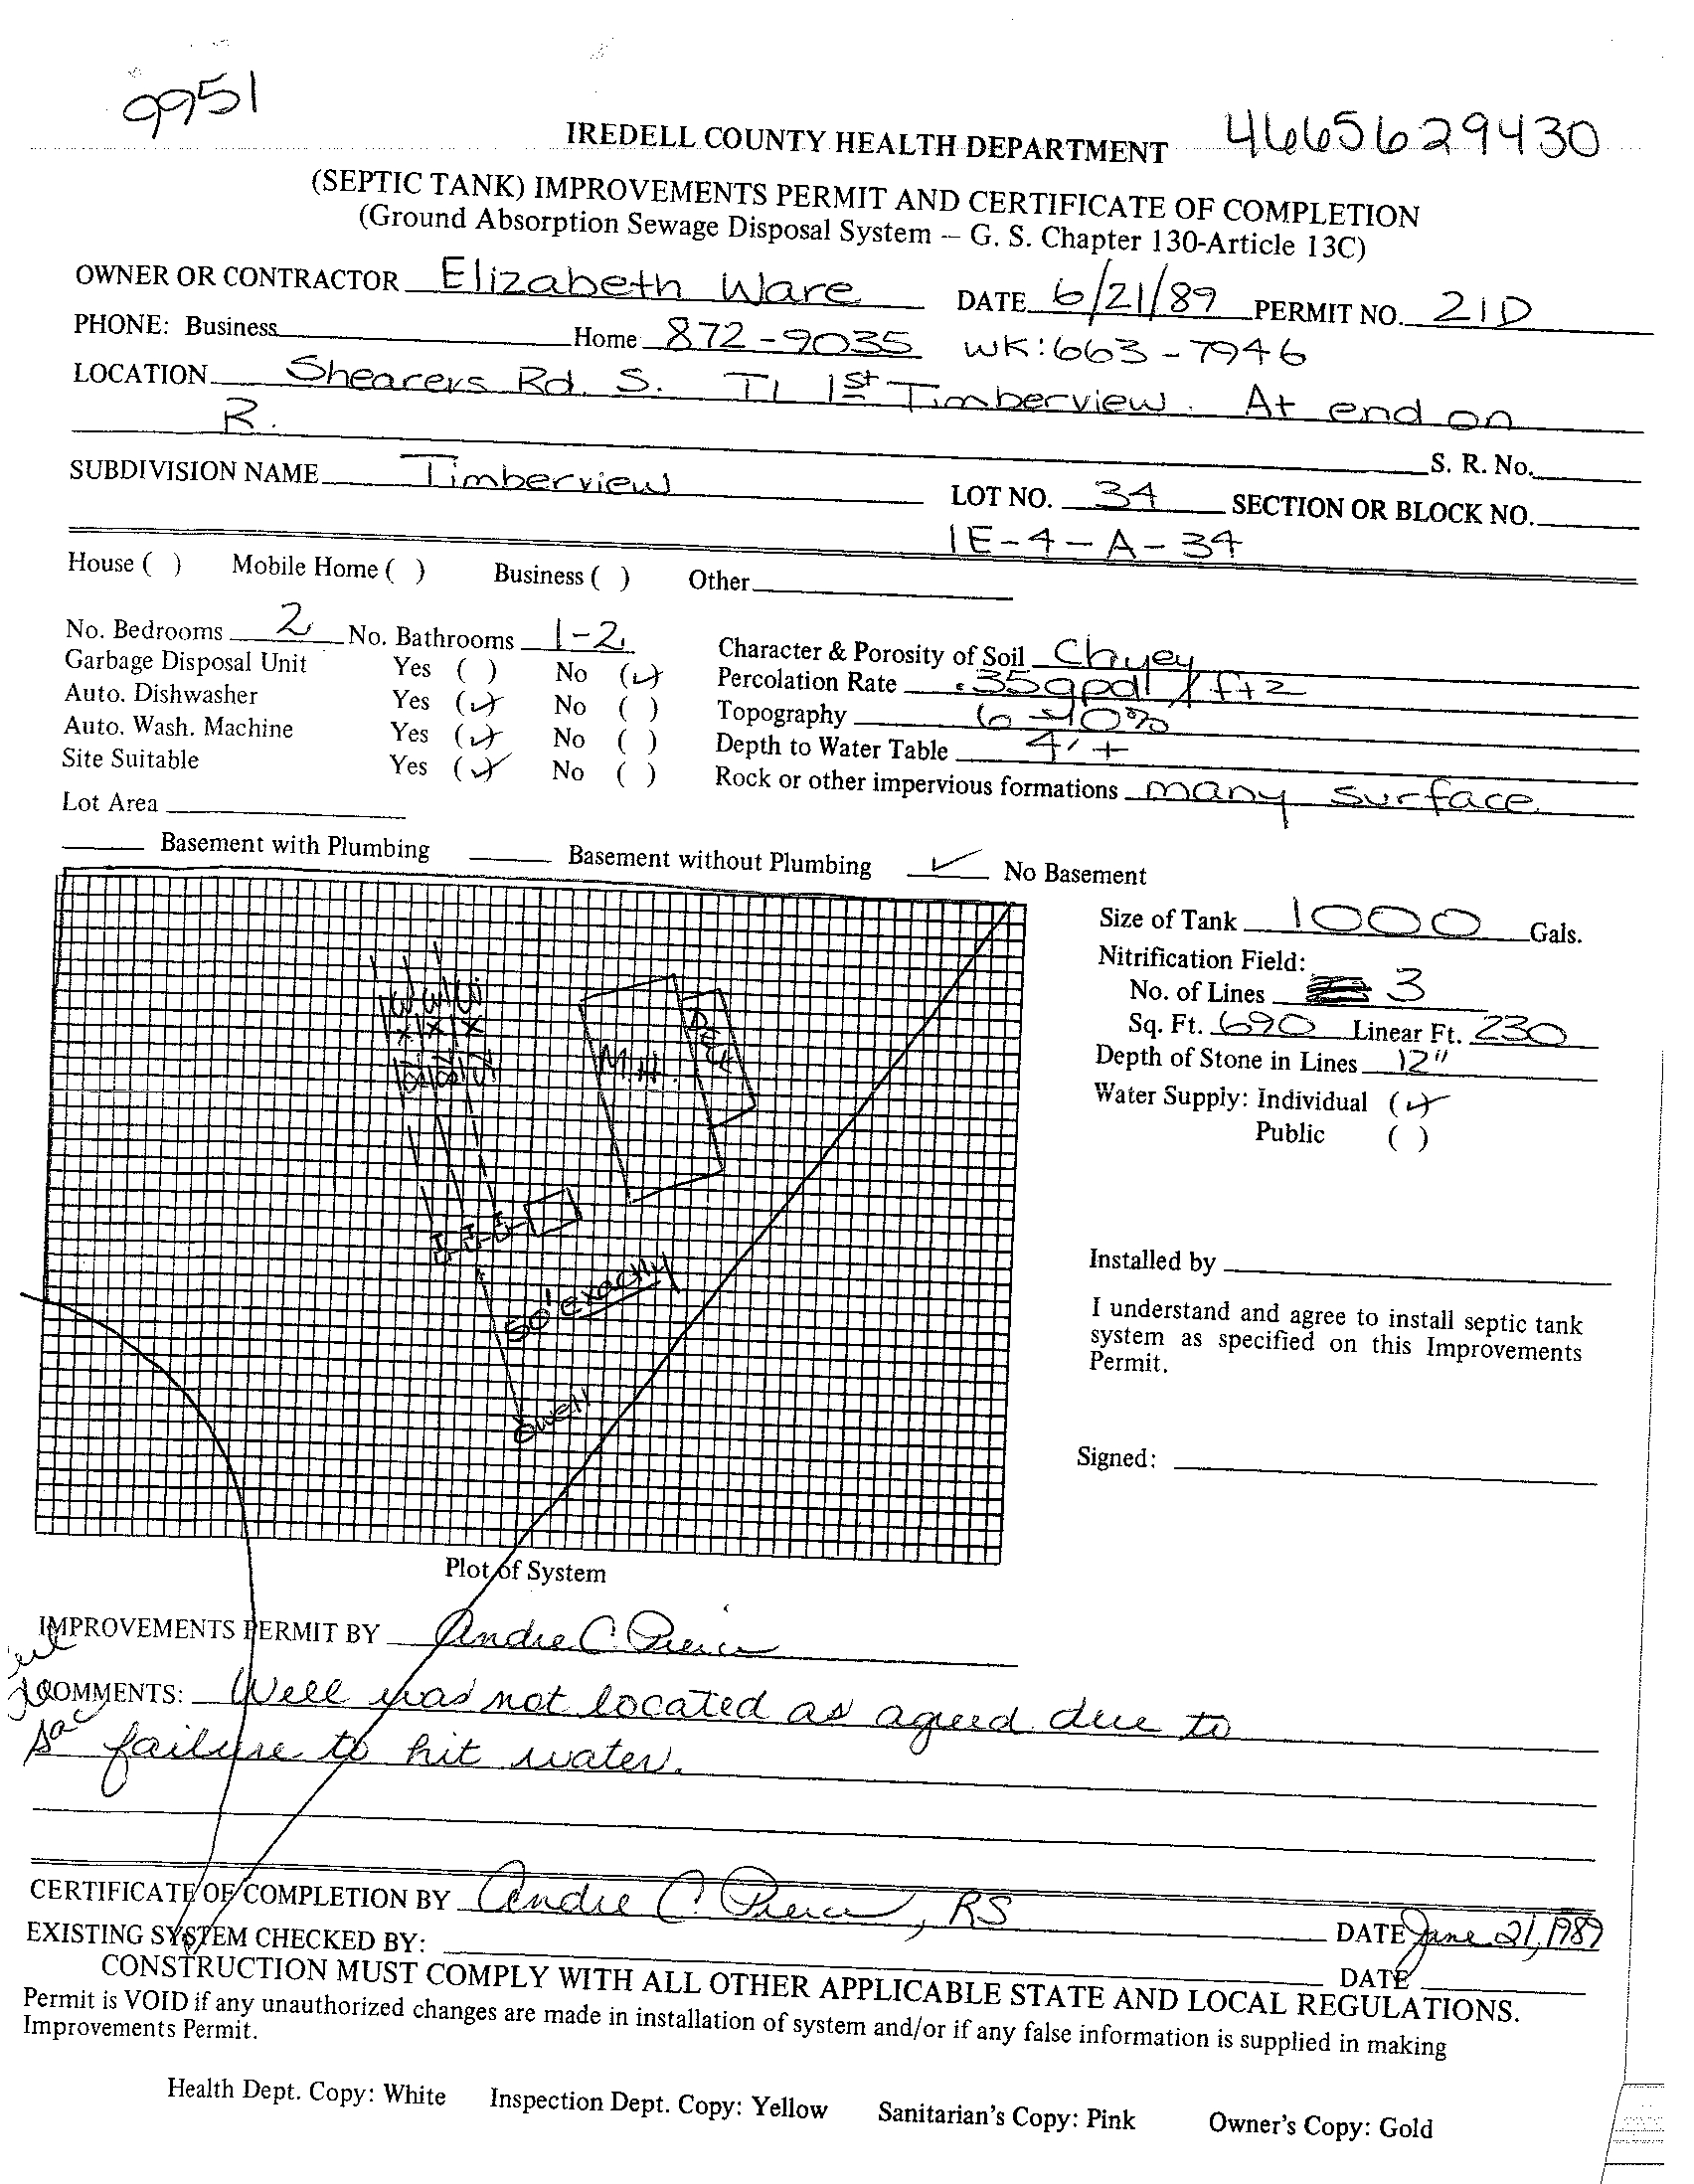 9951
IREDELL COUNTY HEALTH DEPARTMENT 4665629430
(SEPTIC TANK) IMPROVEMENTS PERMIT AND CERTIFICATE OF COMPLETION
(Ground Absorption Sewage Disposal System – G. S. Chapter 130-Article 13C)
OWNER OR CONTRACTOR Elizabeth Ware DATE 6/21/89 PERMIT NO. 21D
PHONE: Business Home 872-9035 WK: 663-7946
LOCATION Shearers Rd. S. TL 1st Timberview. At end on
R.
S. R. No.
SUBDIVISION NAME Timberview LOT NO. 34 SECTION OR BLOCK NO.
1E-4-A-34
House ( ) Mobile Home ( ) Business ( ) Other
No. Bedrooms 2 No. Bathrooms 1-2
Garbage Disposal Unit Yes ( ) No (✓)
Auto. Dishwasher Yes (✓) No ( )
Auto. Wash. Machine Yes (✓) No ( )
Site Suitable Yes (✓) No ( )
Lot Area
Character & Porosity of Soil Clayey
Percolation Rate .35gpd/ft2
Topography 6-10%
Depth to Water Table 4'+
Rock or other impervious formations many surface
Basement with Plumbing Basement without Plumbing ✓ No Basement
Size of Tank 1000 Gals.
Nitrification Field:
No. of Lines 3
Sq. Ft. 690 Linear Ft. 230
Depth of Stone in Lines 12"
Water Supply: Individual (✓)
Public ( )
Installed by
I understand and agree to install septic tank
system as specified on this Improvements
Permit.
Signed:
M.H.
50' exactly
well
Plot of System
IMPROVEMENTS PERMIT BY Andre C. Pierce
COMMENTS: Well was not located as agreed due to
failure to hit water.
CERTIFICATE OF COMPLETION BY Andre C. Pierce, RS DATE June 21, 1989
EXISTING SYSTEM CHECKED BY: DATE
CONSTRUCTION MUST COMPLY WITH ALL OTHER APPLICABLE STATE AND LOCAL REGULATIONS.
Permit is VOID if any unauthorized changes are made in installation of system and/or if any false information is supplied in making
Improvements Permit.
Health Dept. Copy: White Inspection Dept. Copy: Yellow Sanitarian's Copy: Pink Owner's Copy: Gold